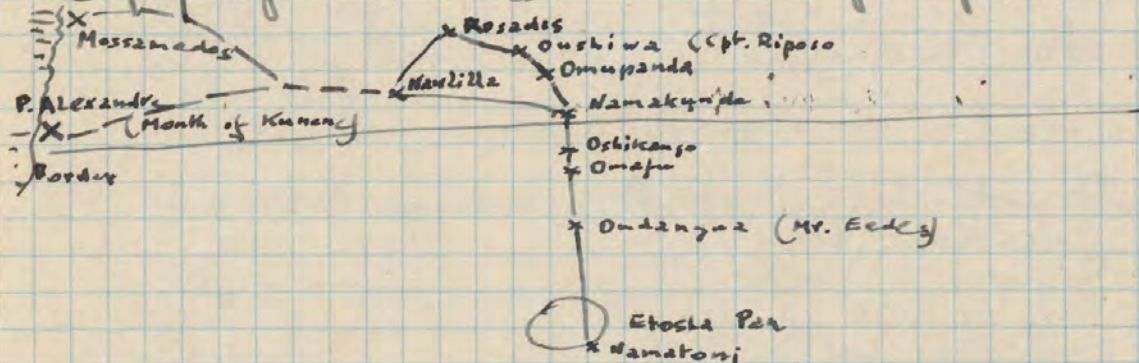 Mossamedes
Rosades
Oushiwa (Cpt. Riposo
Omupanda
Naulilla
Namakunde
P. Alexandre
(Month of Kunene)
Border
Oshikango
Omafu
Ondangua (Mr. Eedes)
Etosha Pan
Namatoni